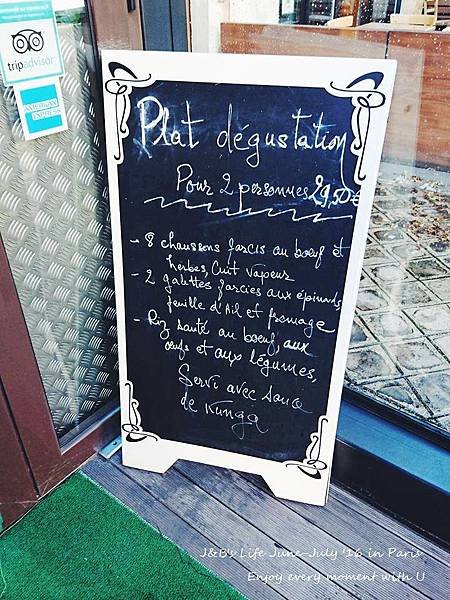 tripadvisor
AMERICAN
EXPRESS
Plat dégustation
Pour 2 personnes 29,50€
- 8 chaussons farcis au bœuf et
herbes, Cuit vapeur
- 2 galettes farcies aux épinards,
feuille d'Ail et fromage
- Riz sauté au bœuf, aux
œufs et aux légumes,
Servi avec sauce
de Kunga
J&B's Life June-July '16 in Paris
Enjoy every moment with U